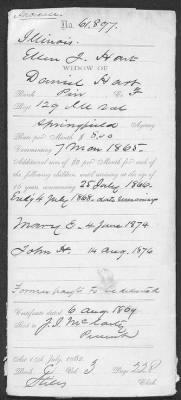 No. 61,897.
Illinois.
Ellen J. Hart
WIDOW OF
Daniel Hart
Rank Priv Co. F
Regt 129 Ills Vol
Springfield Agency
Rate per Month $ 8.00
Commencing 7 Mar 1865.
Additional sum of $2 per month for each of
the following children, until arriving at the age of
16 years, commencing 25 July 1866.
Ends 4 July 1868. date remarriage
Mary E. 4 June 1874
John H. 14 Aug. 1876
Former paym't to be deducted
Certificate dated 6 Aug 1869
Sent to J. I. McCarty
Present
Act 14th July, 1862.
Book E Vol. 3 Page 228
Clerk.